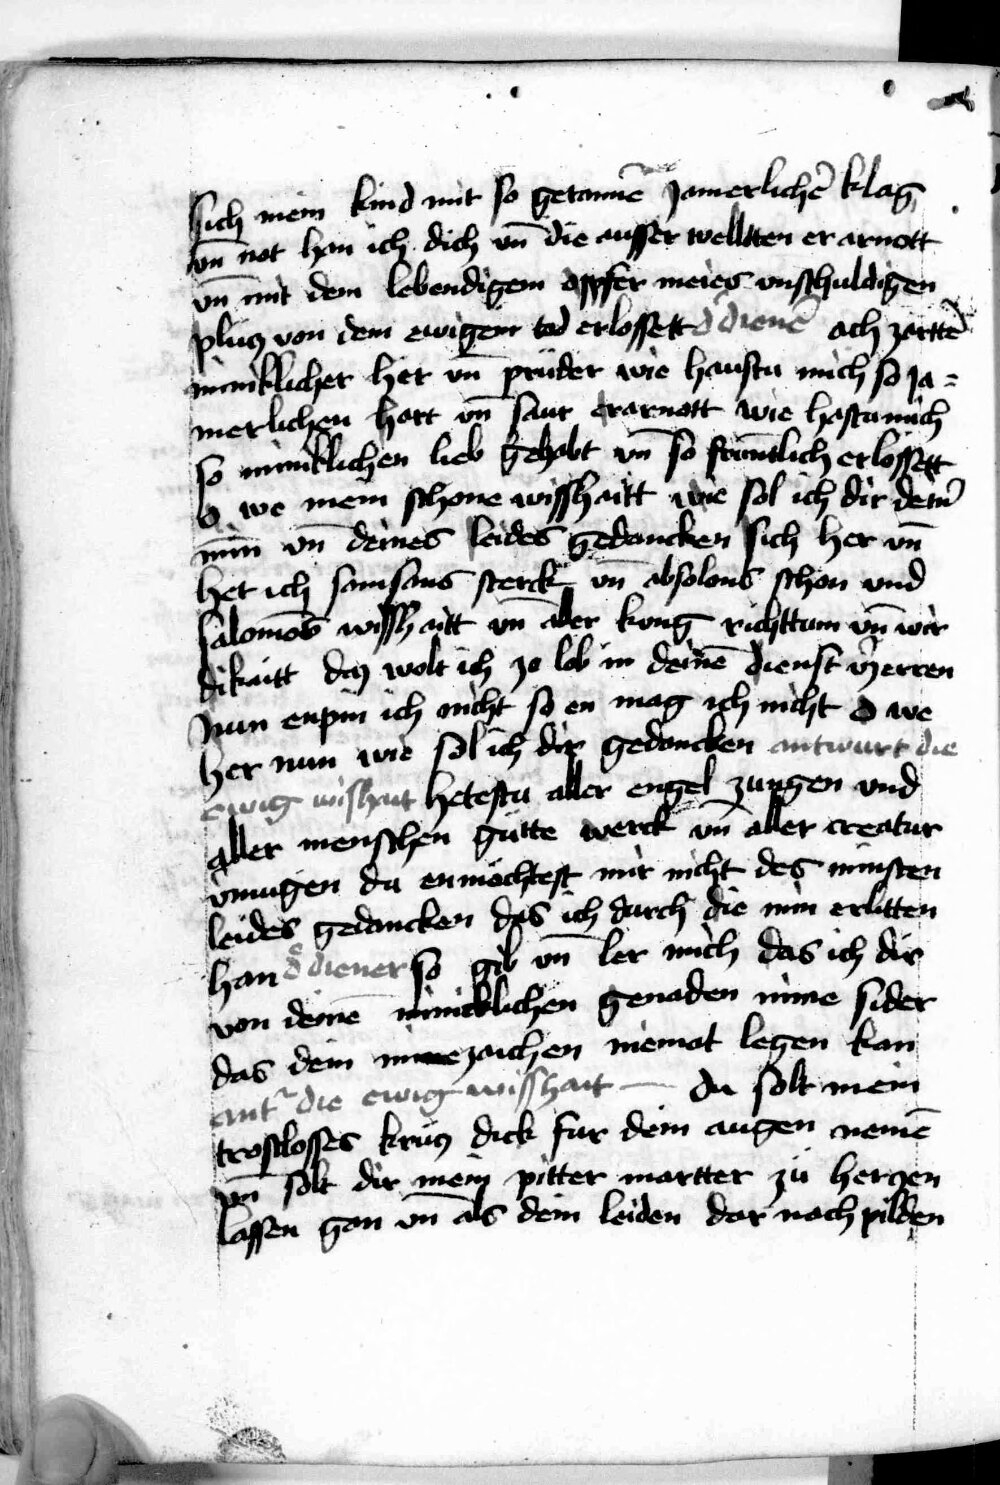 sich mein kind mit so getanne̅ Jamerliche̅ klag
vn̅ not han ich dich vn̅ die ausser wellten er arnott
vn̅ mit dem lebendigem opffer meies vnschuldigen
plutz von dem ewigem tod erlossett d̕ diene̅ ach zartte̕
minniklicher her vn̅ prüder wie haustu mich so Ja=
merlichen hart vn̅ saur erarnott wie hastu mich
so miniklichen lieb gehabt vn̅ so früntlich erlossett
O we mein schone wisshaitt wie sol ich dir dein̕
min vn̅ deines leides gedancken sich her vn̅
het ich samsons sterck vn̅ absolons schon und
salomo̅s wisshaitt vn̅ aller kung richttum vn̅ wir
dikaitt daz wolt ich ze lob in deine̅ dienst v̕zeren
Nun enpin ich nicht so en mag ich nicht O we
her nun wie sol ich dir gedancken antwurt die
ewig wishait hetestu aller engel zungen vnd
aller menschen gütte werck vn̅ aller creatur
v̕mugen du enmöchtest mir nicht des minsten
leides gedancken das ich durch die min erlitten
han d̕ diener so gib vn̅ ler mich das ich dir
von deine̅ minicklichen genaden mine sider
das dein minezaichen niemat legen kan
ant̕ die ewig wisshait — du solt mein
trostlosses krütz dick fur dein augen neme̅
vn̅ solt dir mein pitter martter zü herczen
lassen gan vn̅ als dein leiden dar nach pilden